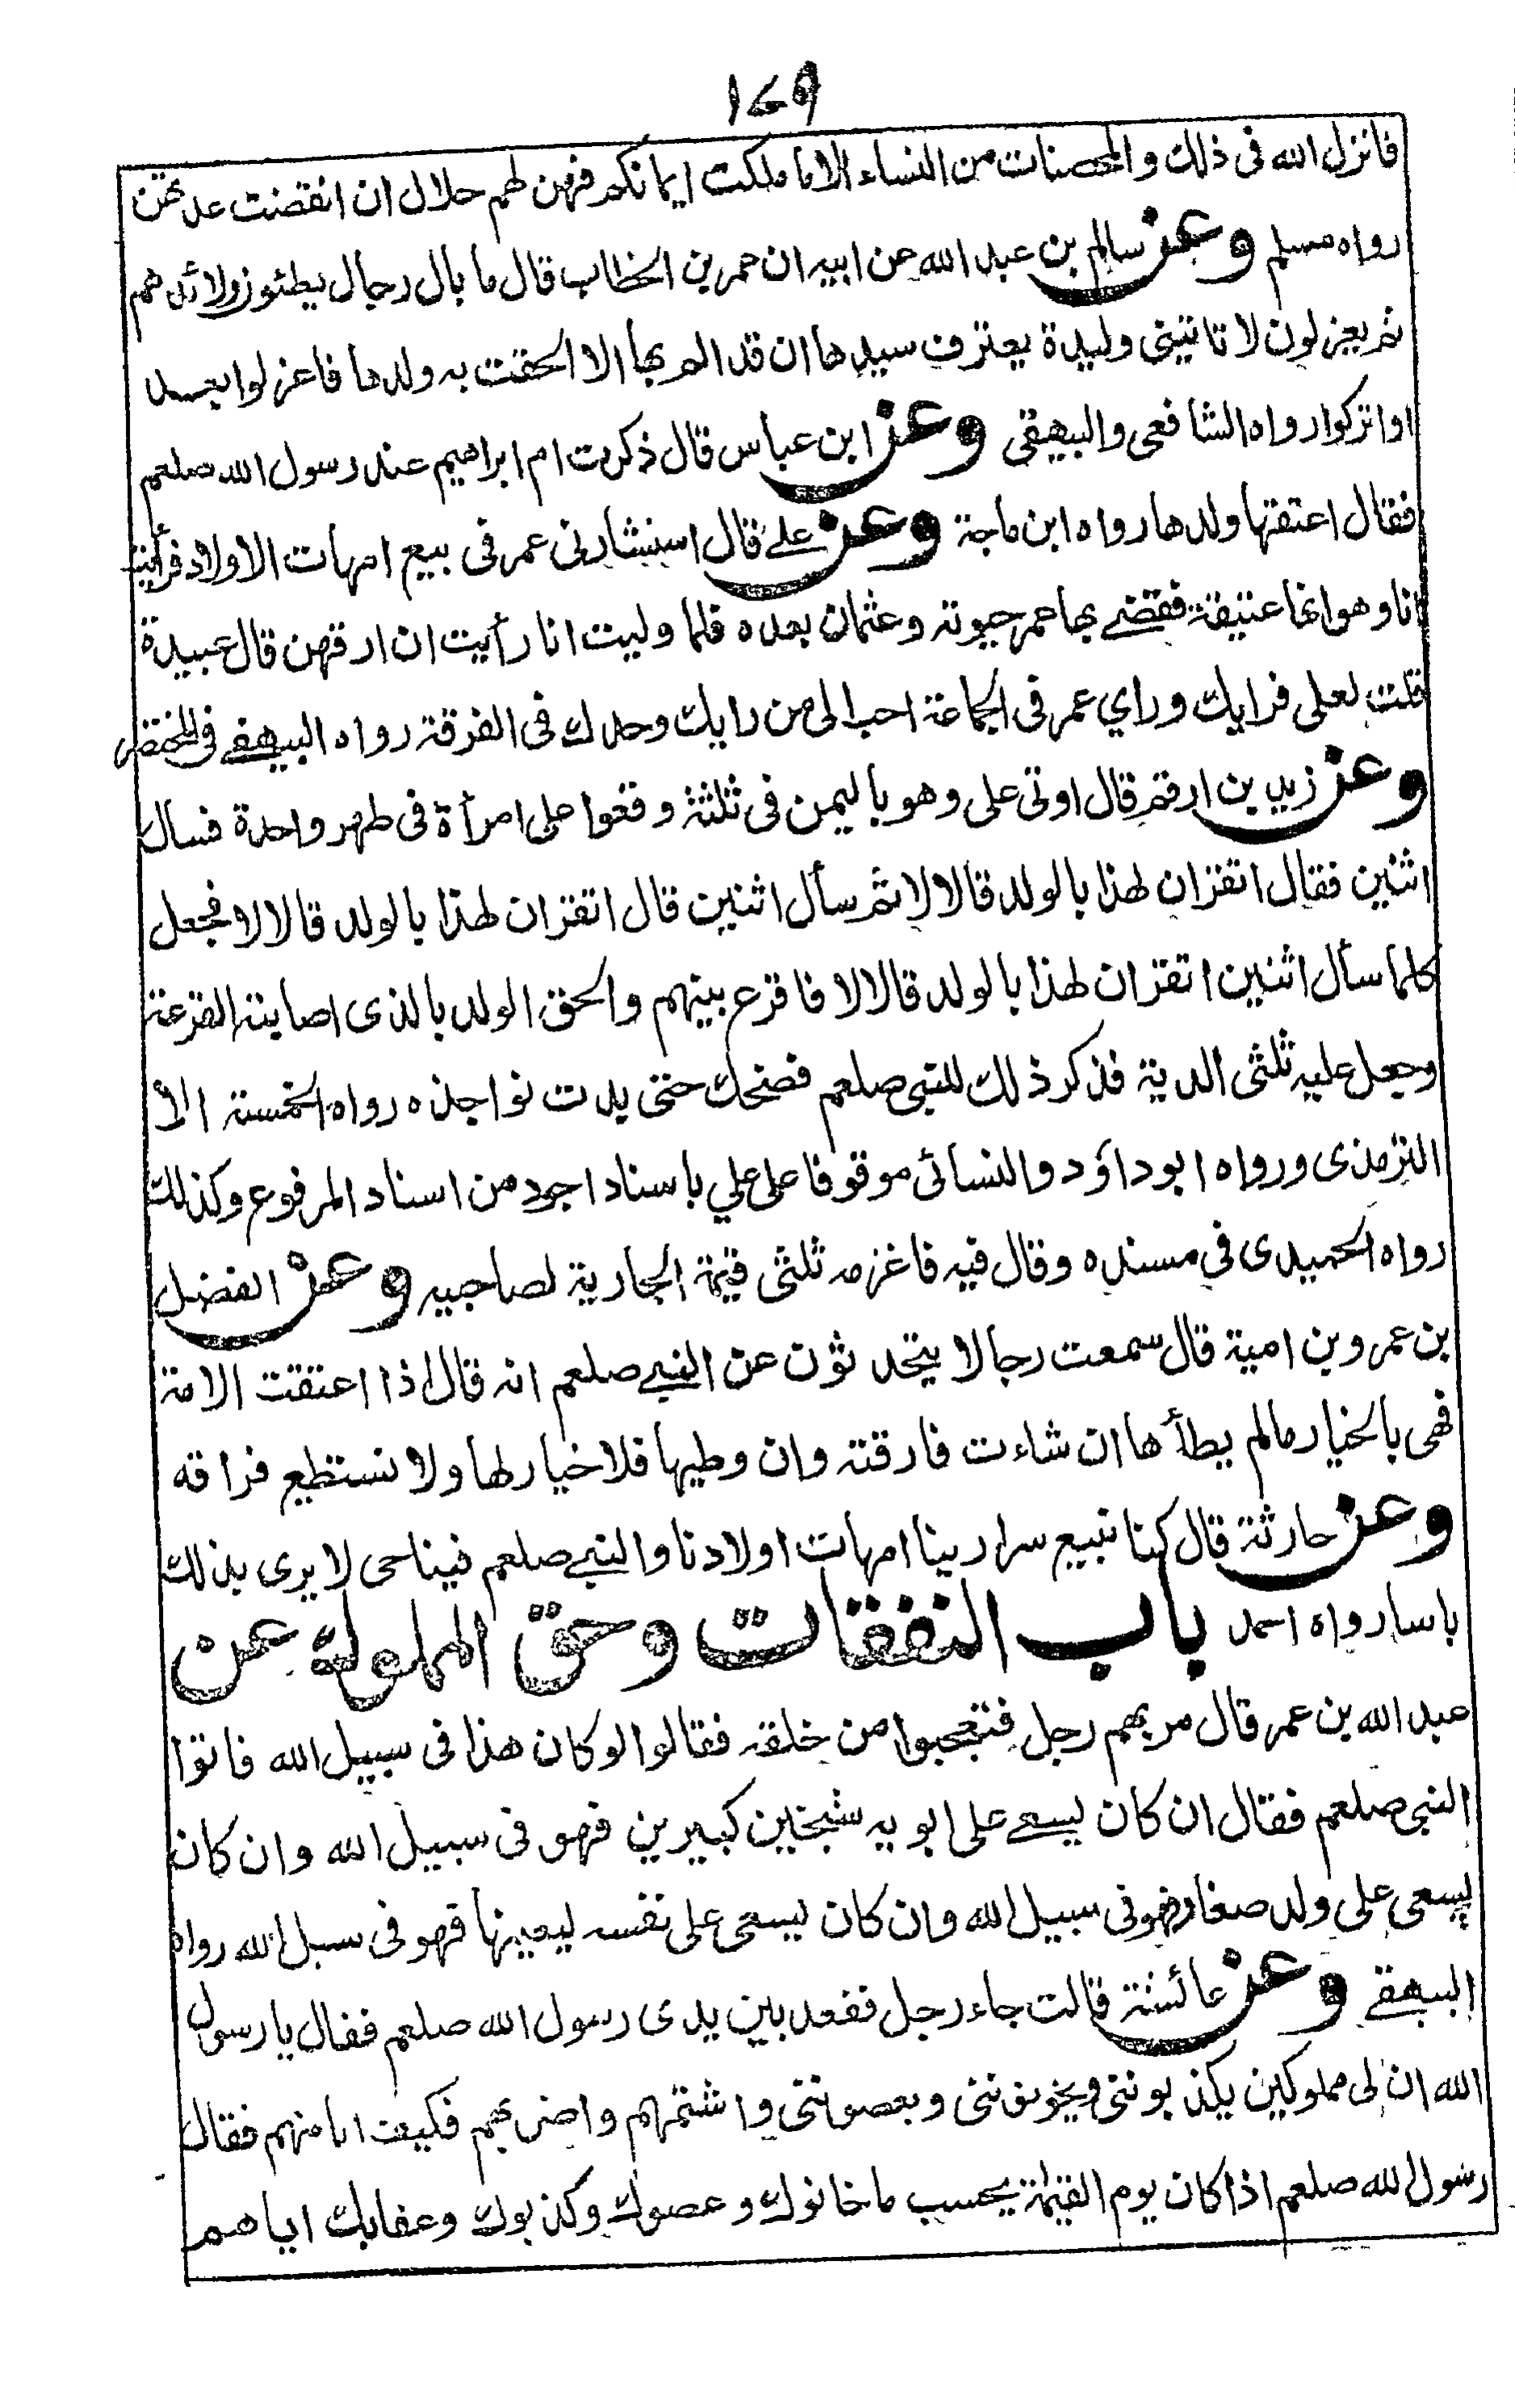 ١٧٩
فانزل الله فى ذلك والمحصنات من النساء الا ما ملكت ايمانكم فهن لهم حلال ان انقضت عدتهن
رواه مسلم وعن سالم بن عبد الله عن ابيه ان عمر بن الخطاب قال ما بال رجال يطئون ولائدهم
ثم يعزلون لا تاتينى وليدة يعترف سيدها ان قد الم بها الا الحقت به ولدها فاعزلوا بعد
او اتركوا رواه الشافعى والبيهقى وعن ابن عباس قال ذكرت ام ابراهيم عند رسول الله صلعم
فقال اعتقها ولدها رواه ابن ماجة وعن على قال استشارنى عمر فى بيع امهات الاولاد فرأيت
انا وهو انها عتيقة فقضے بها عمر حيوته وعثمان بعده فلما وليت انا رأيت ان ارقهن قال عبيدة
قلت لعلى فرايك وراي عمر فى الجماعة احب الى من رايك وحدك فى الفرقة رواه البيهقے فى المختصر
وعن زيد بن ارقم قال اوتى على وهو باليمن فى ثلثة وقعوا على امرأة فى طهر واحدة فسال
اثنين فقال اتقران لهذا بالولد قالا لا ثم سأل اثنين قال اتقران لهذا بالولد قالا لا فجعل
كلما سأل اثنين اتقران لهذا بالولد قالا لا فاقرع بينهم والحق الولد بالذى اصابته القرعة
وجعل عليه ثلثى الدية فذكر ذلك للنبى صلعم فضحك حتى بدت نواجذه رواه الخمسة الا
الترمذى ورواه ابو داؤد والنسائى موقوفا على علي باسناد اجود من اسناد المرفوع وكذلك
رواه الحميدى فى مسنده وقال فيه فاغرمه ثلثى قيمة الجارية لصاحبيه وعن الفضل
بن عمرو بن امية قال سمعت رجالا يتحدثون عن النبے صلعم انه قال اذا اعتقت الامة
فهى بالخيار مالم يطأها ان شاءت فارقته وان وطيها فلا خيار لها ولا تستطيع فراقه
وعن حارثة قال كنا نبيع سرارينا امهات اولادنا والنبے صلعم فينا حى لا يرى بذلك
باسا رواه احمد باب النفقات وحق المملوك عن
عبد الله بن عمر قال مر بهم رجل فتعجبوا من خلقه فقالوا لو كان هذا فى سبيل الله فاتوا
النبى صلعم فقال ان كان يسعے على ابويه شيخين كبيرين فهو فى سبيل الله وان كان
يسعى على ولد صغار فهو فى سبيل الله وان كان يسعى على نفسه ليعينها فهو فى سبل الله رواه
البيهقے وعن عائشة قالت جاء رجل فقعد بين يدى رسول الله صلعم فقال يا رسول
الله ان لى مملوكين يكذبوننى ويخونوننى ويعصوننى واشتمهم واضربهم فكيف انا منهم فقال
رسول الله صلعم اذا كان يوم القيمة يحسب ما خانوك وعصوك وكذبوك وعقابك اياهم